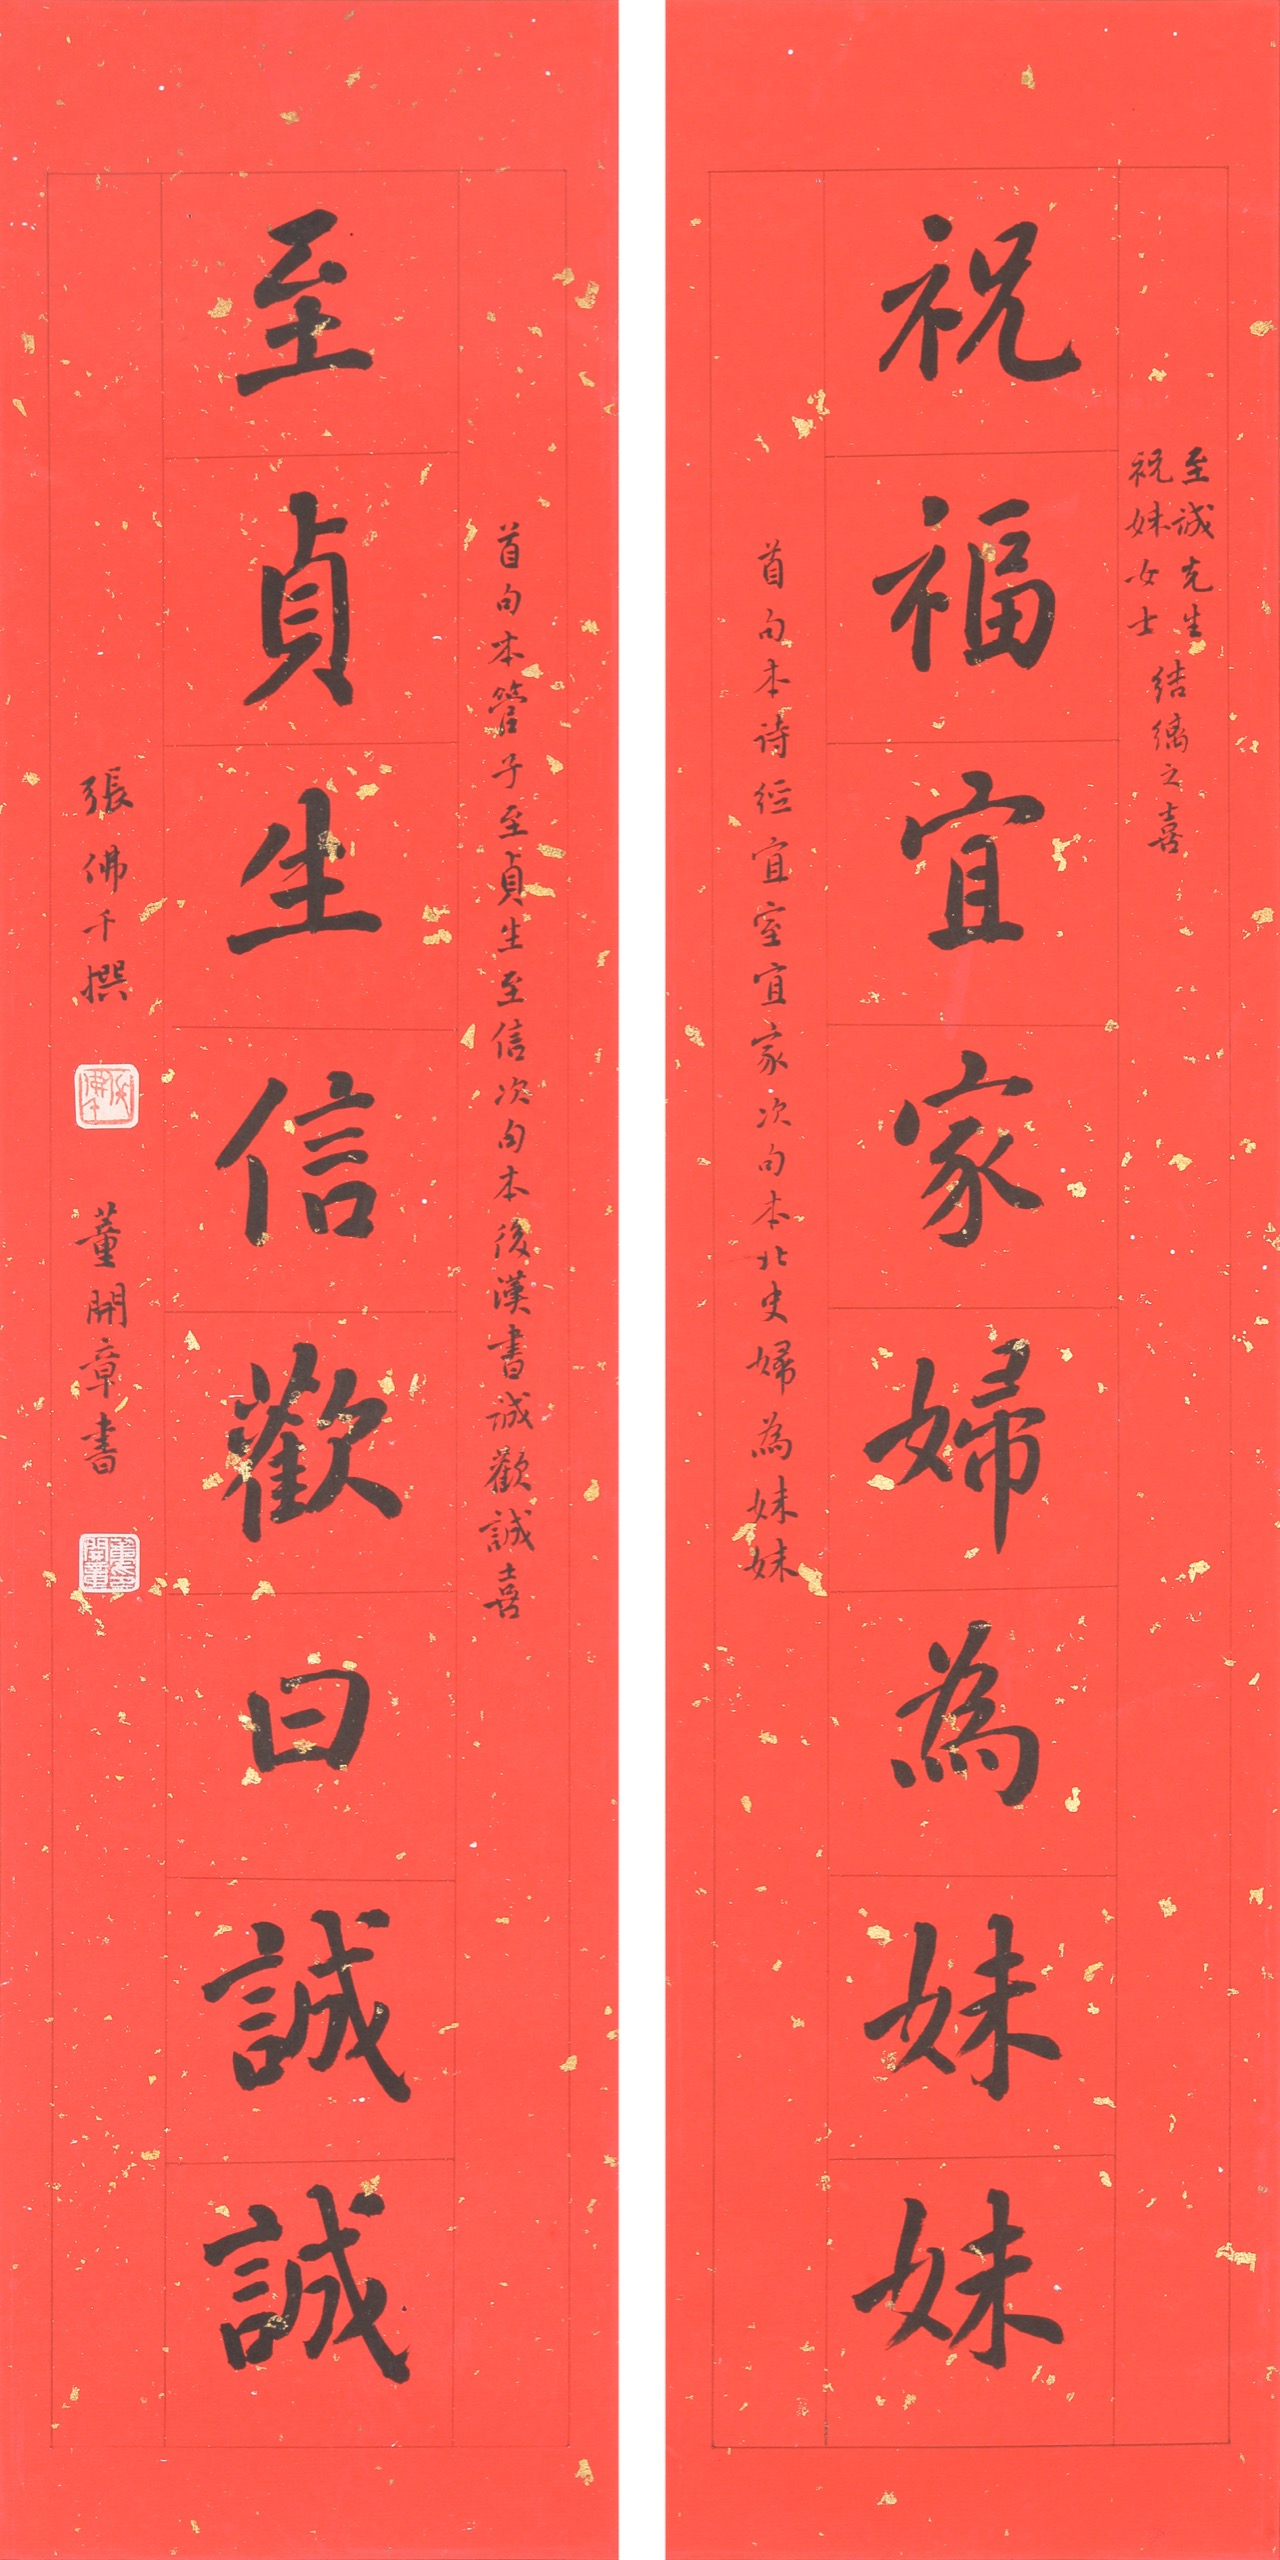 至誠先生
祝妹女士
結縭之喜
祝福宜家婦為妹妹
首句本詩經宜室宜家次句本北史婦為妹妹
首句本管子至貞生至信次句本後漢書誠歡誠喜
至貞生信歡曰誠誠
張佛千撰
董開章書
董開章